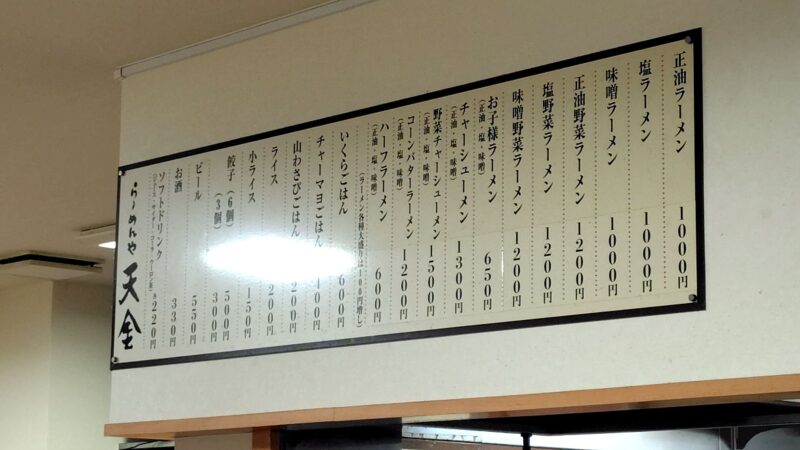 正油ラーメン 1000円
塩ラーメン 1000円
味噌ラーメン 1000円
正油野菜ラーメン 1200円
塩野菜ラーメン 1200円
味噌野菜ラーメン 1200円
お子様ラーメン 650円
(正油・塩・味噌)
チャーシューメン 1300円
(正油・塩・味噌)
野菜チャーシューメン 1500円
(正油・塩・味噌)
コーンバターラーメン 1200円
(正油・塩・味噌)
ハーフラーメン 600円
(正油・塩・味噌)
(ラーメン各種大盛りは100円増し)
いくらごはん 600円
チャーマヨごはん 00円
山わさびごはん 200円
ライス 200円
小ライス 150円
餃子(6個) 500円
(3個) 300円
ビール 550円
お酒 330円
ソフトドリンク 各220円
らーめんや 天金